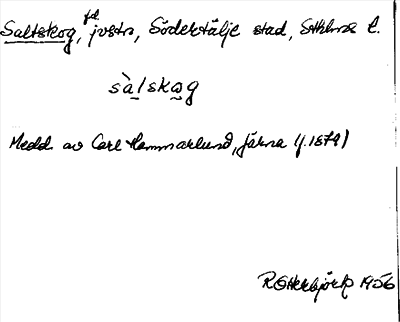 Saltskog, fd jvstn, Södertälje stad, Sthlms l.
sàlskωg
Medd. av Carl Hammarlund, Järna (f. 1879)
R Otterbjörk 1956